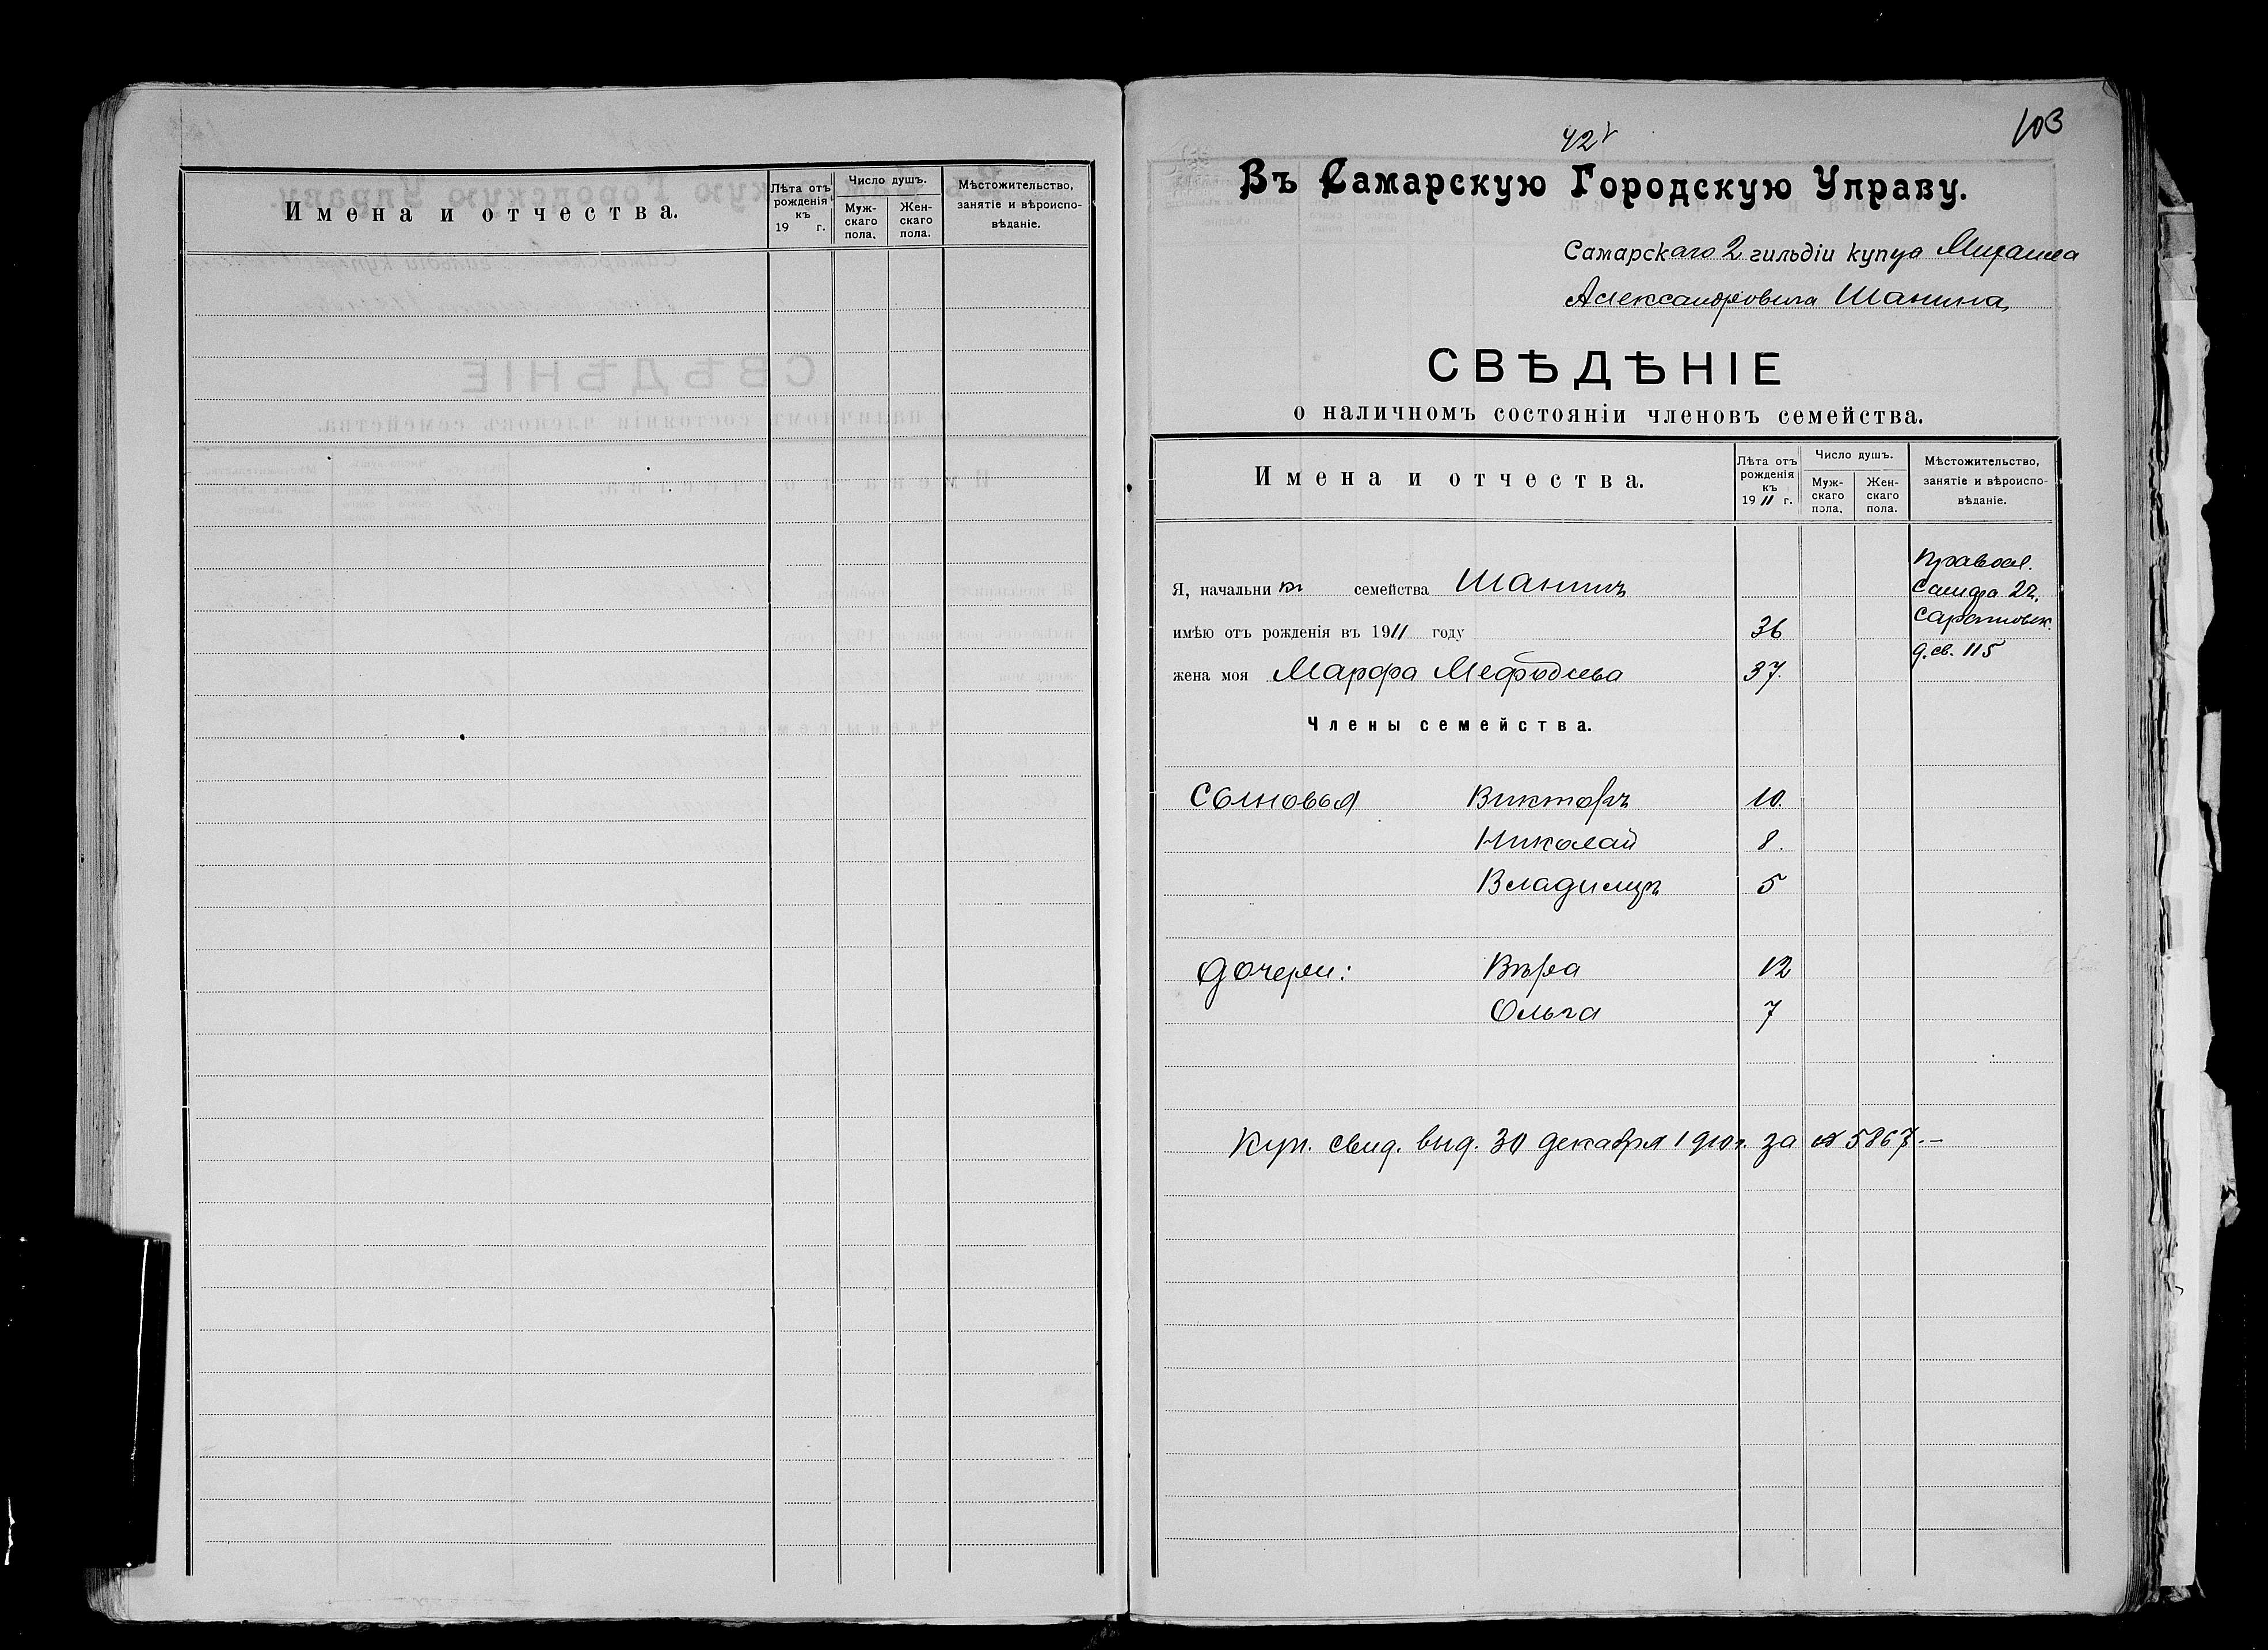 Имена и отчества.
Лѣта отъ рожденія къ 19 г.
Число душъ.
Муж-скаго пола.
Жен-скаго пола.
Мѣстожительство, занятіе и вѣроиспо-вѣданіе.
103
42
Въ Самарскую Городскую Управу.
Самарскаго 2 гильдіи купца Михаила
Александровича Шанина
СВѢДѢНІЕ
о наличномъ состояніи членовъ семейства.
Имена и отчества.
Лѣта отъ рожденія къ 1911 г.
Число душъ.
Муж-скаго пола.
Жен-скаго пола.
Мѣстожительство, занятіе и вѣроиспо-вѣданіе.
Правосл.
Я, начальникъ семейства Шанинъ
Самара 2ч.
Саратовск.
имѣю отъ рожденія въ 1911 году 36
д. св. 115
жена моя Марфа Мефодіева 37.
Члены семейства.
Сыновья Викторъ 10.
Николай 8.
Владимиръ 5
дочери: Вѣра 12
Ольга 7
Куп. свид. выд. 30 декабря 1910 г. за № 5867.—